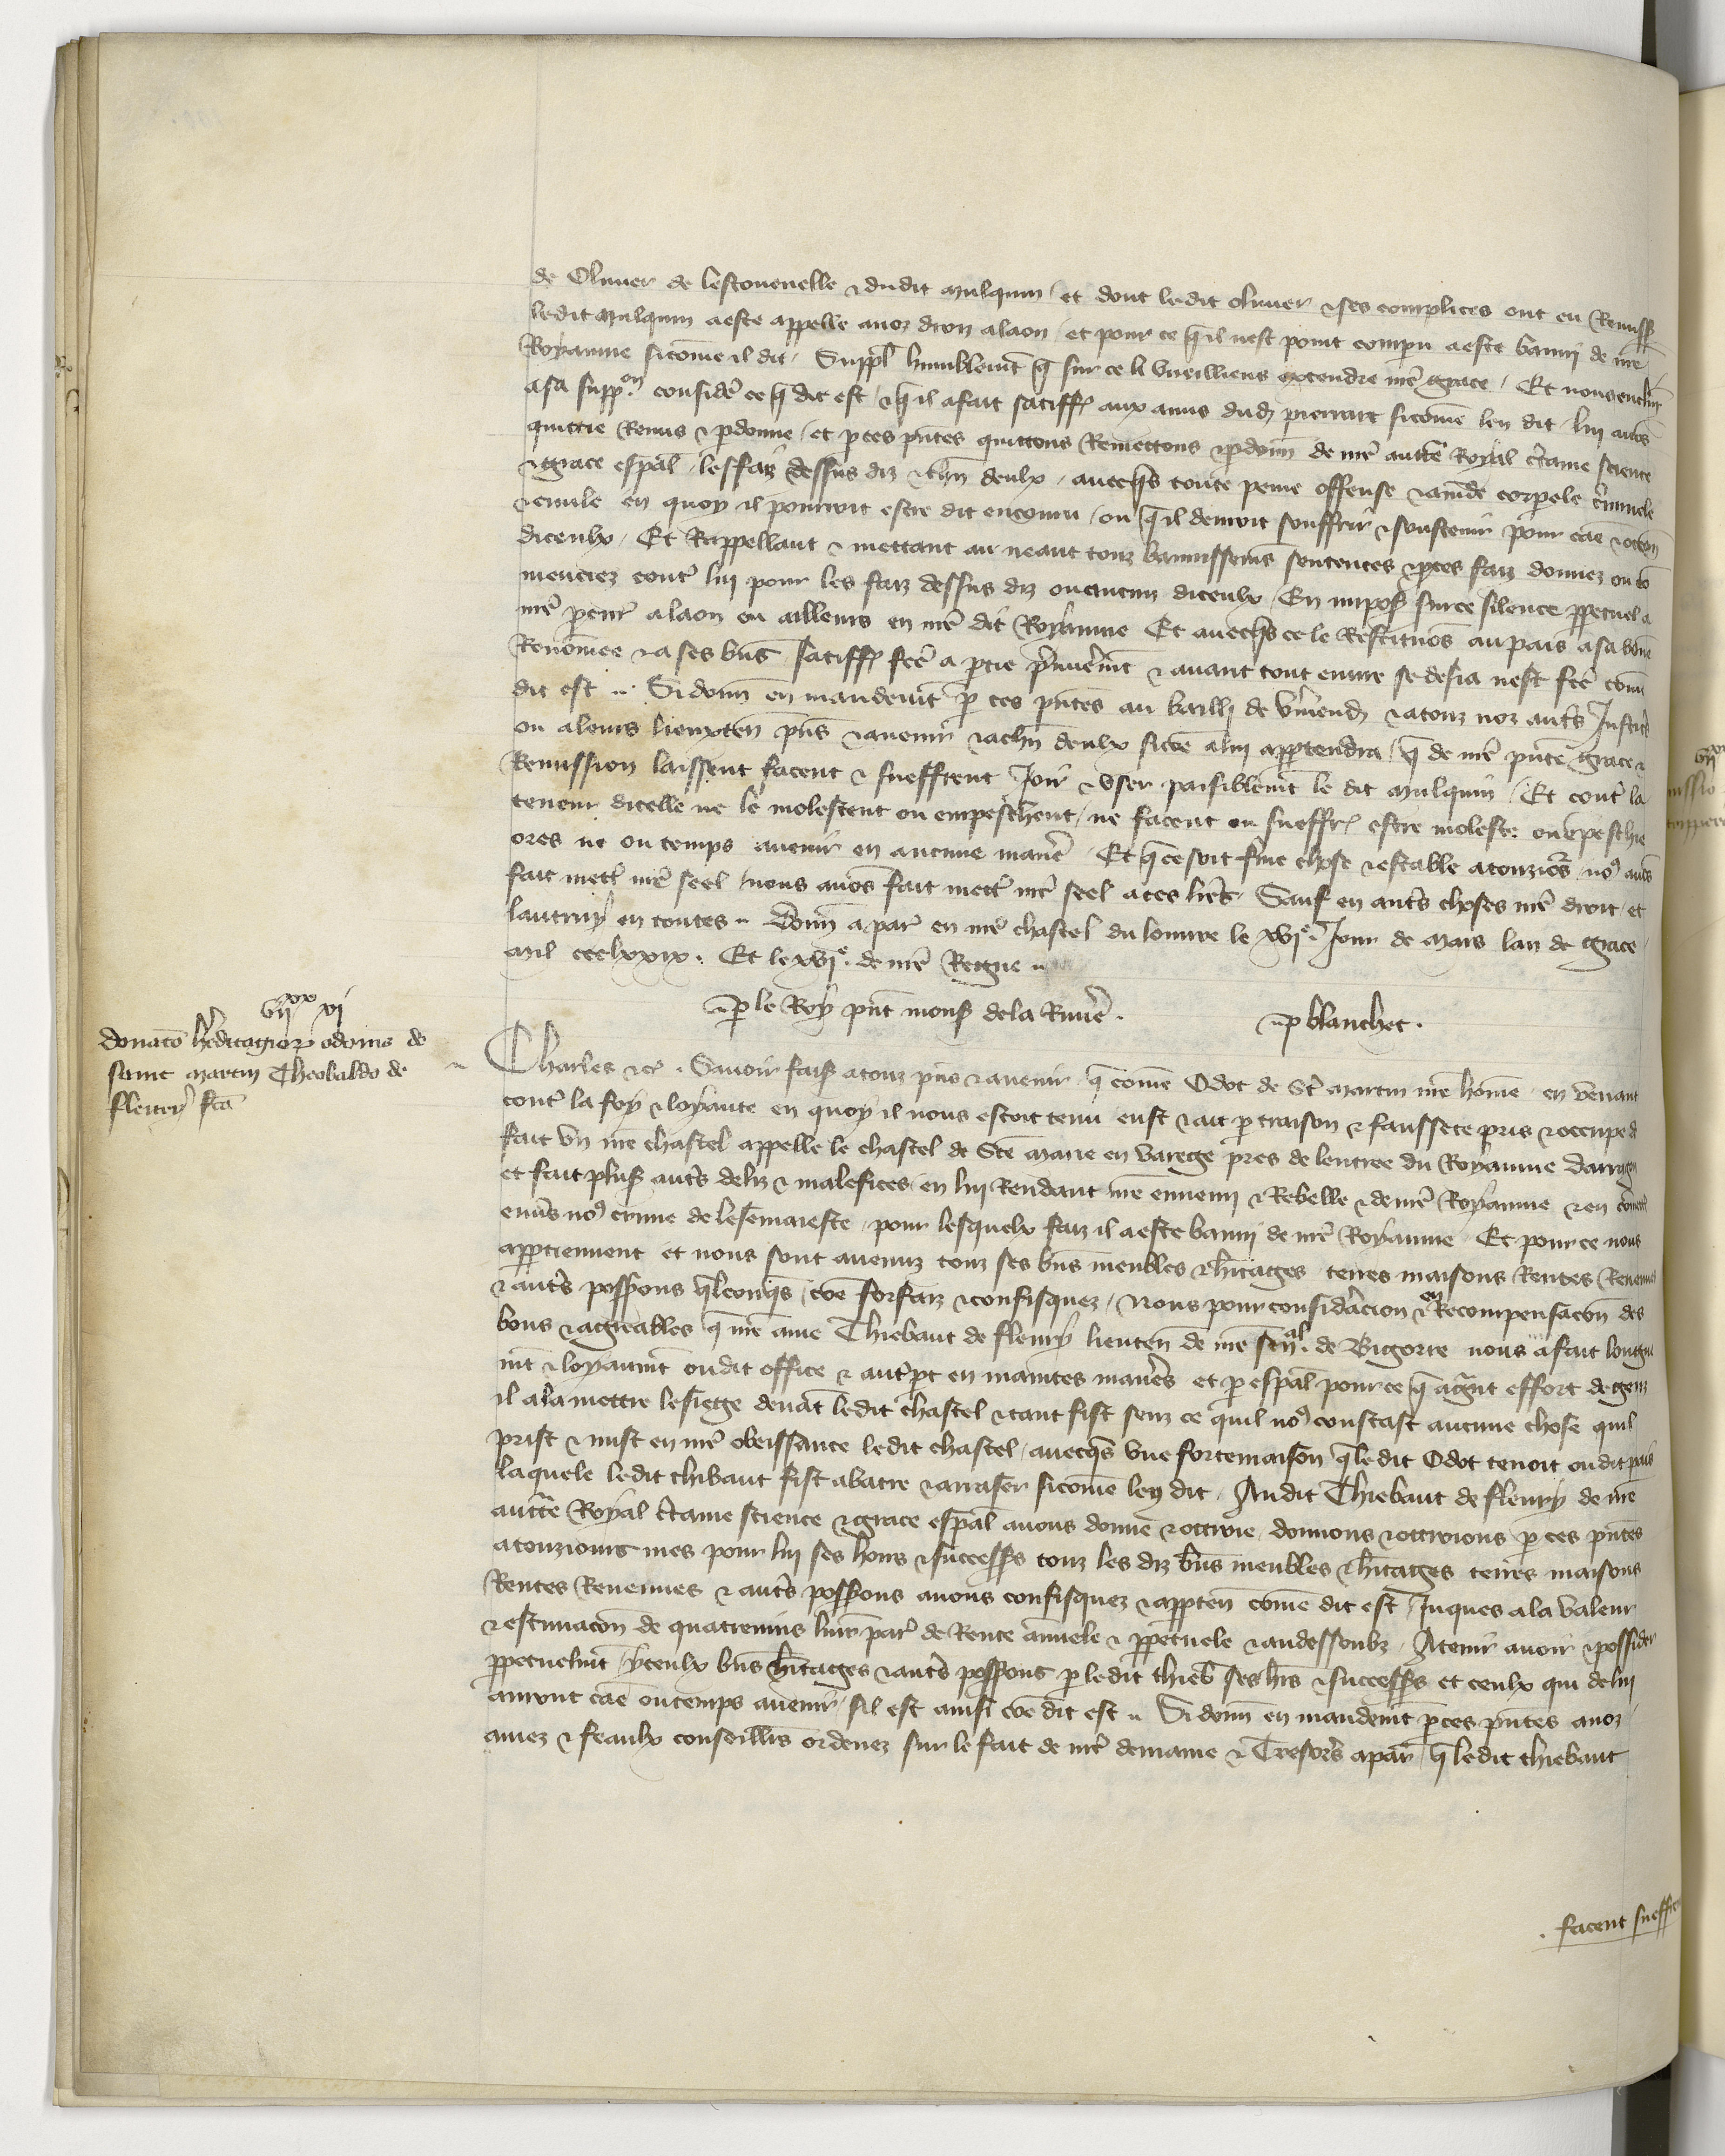 de Oliuer de lescouuelle ⁊ dudit Mulquin / et dont ledit oliuer ⁊ ses complices ont eu Remiss̃
ledit Mulquin a este appelle a noz droiz a laon / et pour ce q̃ il nest point compu a este banni de nr̃e
Royaume sicom̃e il dit / Suppl̃ humblemẽt q̃ sur ce li vueilliens extendre nr̃e grace / Et nous enclin
a sa suppon. considẽ ce q̃ dit est / ⁊ q̃ il a fait satiffs̃ aux amis dud pierrart sicom̃e len dit / lui auõs
quittie Remis ⁊ p̱donne / et p̱ ces pñtes quittons Remettons ⁊ p̱donñ de nr̃e auctẽ Royal c̃taine science
⁊ grace esp̃al / les faiz dessus diz ⁊ ch̃n deulx / auecq̃s toute peine offense ⁊ am̃de corporele c̃minele
⁊ ciuile en quoy il pourroit estre dit encouru / ou q̃ il deuroit souffrir ⁊ soustenir pour cãe ⁊ occõn
diceulx / Et Rappellant ⁊ mettant au neant touz bannissemẽs sentences ⁊ p̱ces faiz donnez ou cõ
menciez contr̃ lui pour les faiz dessus diz ou aucun diceulx / En impos̃ sur ce silence p̱petuel a
nr̃e p̱cur̃ a laon ou ailleurs en nr̃e dit Royaume Et auecq̃s ce le Restituõs au pais a sa bõne
Renõmee ⁊ a ses biñs satiffs̃ fc̃e a p̱tie p̃mierem̃t ⁊ auant tout euure se desia nest fc̃e cõm
dit est .. Si donñ en mandemẽt p̱ ces pñtes au bailli de v̾mend ⁊ a touz noz autr̃s Justicĩes
ou a leurs lieuxteñ pñs ⁊ auenir ⁊ a ch̃n deulx sicõe a lui app̱tendra / q̃ de nr̃e pñte grace ⁊
Remission laissent facent ⁊ sueffrent Joir ⁊ vser paisiblemẽt le dit Mulquin / Et contr̃ la
teneur dicelle ne le molestent ou empeschent / ne facent ou sueffr̃ estre moleste ou ẽpeschie
ores ne ou temps auenir en aucune manĩe / Et q̃ ce soit fme chose ⁊ estable a touziõrs / no⁹ auõs
fait mettr̃ nr̃e seel nous auõs fait mettr̃ nr̃e seel a ces lr̃es / Sauf en autr̃s choses nr̃e droit / et
lautruy en toutes .. Donñ a par̃ en nr̃e chastel du louure le xvje. Jour de Mars lan de grace
Mil ccclxxix. Et le xvje. de nr̃e Regne ..
p̱ le Roy pñt mons̃ de la Riuĩe. p blanchet.
vijxx vj
donacõ her̃ditagior̃ odonis de
saint martin Theobaldo de
fleury fc̃a
Charles ⁊c̃. Sauoir fais̃ a touz pñs ⁊ auenir / q̃ com̃e Odot de St̃ Martin nr̃e hom̃e / en venant
contr̃ la foy ⁊ loyaute en quoy il nous estoit tenu eust ⁊ ait p̱ traison ⁊ faussete pris ⁊ occupe d
fait vn nr̃e chastel appelle le chastel de Stẽ Marie en varege pres de lentree du Royaume darragon
et fait plus̃ autr̃s deliz ⁊ malefices en lui Rendant nr̃e ennemi ⁊ Rebelle ⁊ de nr̃e Royaume ⁊ en cõmett
enu̾s no⁹ crime de lese maieste / pour lesquelx faiz il a este banni de nr̃e Royaume / Et pour ce nous
app̱tiennent et nous sont auenuz touz ses biñs meubles ⁊ h̃itages / terres maisons Rentes Reuenues
⁊ autr̃s poss̃ions q̃lconq̃s / cõe forfaiz ⁊ confisquez / Nous pour consid̃acion ⁊ en Recompensacõn des
bons ⁊ agreables q̃ nr̃e ame Thiebaut de fleury lieuteñ de nr̃e senal. de Bigorre nous a fait longue
mẽt ⁊ loyaumẽt oudit office ⁊ autr̃ p̱t en maintes manĩes et p̱ esp̃al pour ce q̃ a g̃nt effort de genz
il ala mettre le siege deuãt ledit chastel ⁊ tant fist senz ce quil no⁹ constast aucune chose quil
prist ⁊ mist en nr̃e obeissance ledit chastel / auecq̃s vne forte maison q̃ le dit Odot tenoit oudit pais
laquele ledit thibaut fist abatre ⁊ arraser sicom̃e len dit / Audit Thiebaut de fleury de nr̃e
auctẽ Royal c̃taine science ⁊ grace esp̃al auons donne ⁊ ottroie / donnons ⁊ ottroions p̱ ces pñtes
a touziours mes pour lui ses hoirs ⁊ success̃s touz les diz biñs meubles ⁊ h̃itages terres maisons
Rentes Reuenues ⁊ autr̃s poss̃ions a nous confisquez ⁊ app̱teñ com̃e dit est / Juques a la valeur
⁊ estimacõn de quatreuins liur̃ par̃ de Rente annuele ⁊ p̱petuele ⁊ au dessoubz / A tenir auoir ⁊ possider
p̱petuelmẽt yceulx biñs h̃itages ⁊ autr̃s poss̃ions p̱ ledit thieb̃ ses hr̃s ⁊ success̃s et ceulx qui de lui
auront cãe ou temps auenir / sil est ainsi cõe dit est .. Si donñ en mandemẽt p̱ ces pñtes a noz
amez ⁊ feaulx conseill̃rs ordenez sur le fait de nr̃e demaine ⁊ Tresorĩs a par̃ / q̃ ledit thiebaut
. facent sueffre